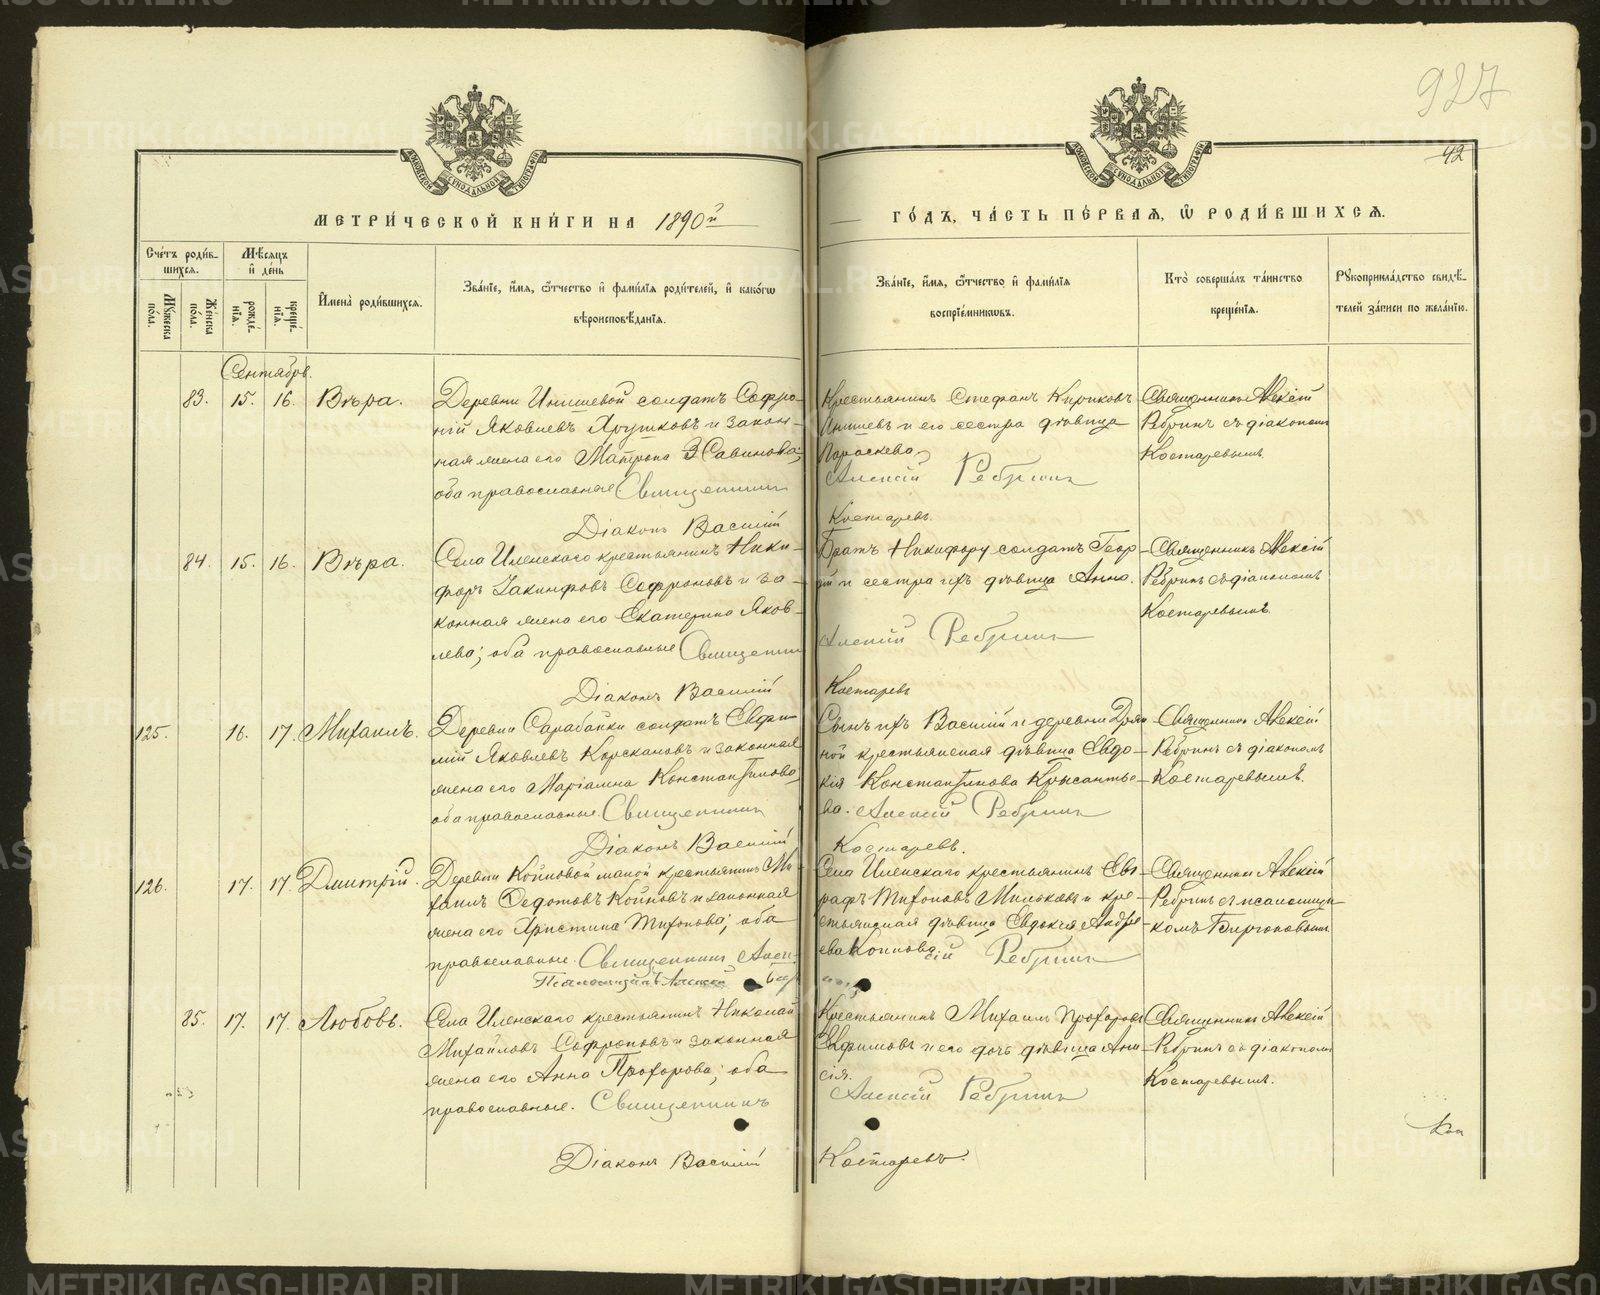 927
42
МЕТРИЧЕСКОЙ КНИГИ НА 1890й
ГОДЪ, ЧАСТЬ ПЕРВАЯ, Ѿ РОДИВШИХСЯ.
Счетъ родив-
шихся.
Мужеска
пола.
Женска
пола.
Мѣсяцъ
и день
рожде-
нія.
креще-
нія.
Имена родившихся.
Званіе, имя, ѿтчество и фамилія родителей, и какогѡ
вѣроисповѣданія.
Званіе, имя, ѿтчество и фамилія
воспріемниковъ.
Кто совершалъ таинство
крещенія.
Рукоприкладство свидѣ-
телей записи по желанію.
Сентябрь.
83. 15. 16. Вѣра.
Деревни солдатъ Софро-
ній Яковлевъ и закон-
ная жена его Матрона Савинова;
оба православные Священникъ
Діаконъ Василій
Крестьянинъ Стефанъ Кириковъ
и его сестра дѣвица
Параскева.
Алексій Ребринъ
Костаревъ.
Священникъ Алексій
Ребринъ съ діакономъ
Костаревымъ.
84. 15. 16. Вѣра.
Села Иленскаго крестьянинъ Ники-
форъ Іакинфовъ Софроновъ и за-
конная жена его Екатерина Яков-
лева; оба православные Священникъ
Діаконъ Василій
Братъ Никифору солдатъ Геор-
гій и сестра ихъ дѣвица Анна.
Алексій Ребринъ
Костаревъ
Священникъ Алексій
Ребринъ съ діакономъ
Костаревымъ.
125. 16. 17. Михаилъ.
Деревни Сарабайки солдатъ Евфи-
мій Яковлевъ и законная
жена его Маріамна Константинова
оба православные. Священникъ
Діаконъ Василій
Сынъ ихъ Василій и деревни
крестьянская дѣвица Евдо-
кія Константинова
ва. Алексій Ребринъ
Костаревъ.
Священникъ Алексій
Ребринъ съ діакономъ
Костаревымъ.
126. 17. 17. Дмитрій.
Деревни Койновой малой крестьянинъ Ми-
хаилъ Федотовъ Койновъ и законная
жена его Христина Тихонова; оба
православные. Священникъ Алек-
Псаломщикъ Алексей
Села Иленскаго крестьянинъ Евг
рафъ Тихоновъ Мильковъ и кре-
стьянская дѣвица Евдокія Андре-
ева Койнова. сій Ребринъ
Священникъ Алексій
Ребринъ съ псаломщи-
комъ
85. 17. 17. Любовь.
Села Иленскаго крестьянинъ Николай
Михайловъ Софроновъ и законная
жена его Анна Прохорова; оба
православные. Священникъ
Діаконъ Василій
Крестьянинъ Михаилъ Прохоровъ
Евфимовъ и его дочь дѣвица Ани-
сія.
Алексій Ребринъ
Костаревъ.
Священникъ Алексій
Ребринъ съ діакономъ
Костаревымъ.
METRIKI.GASO-URAL.RU